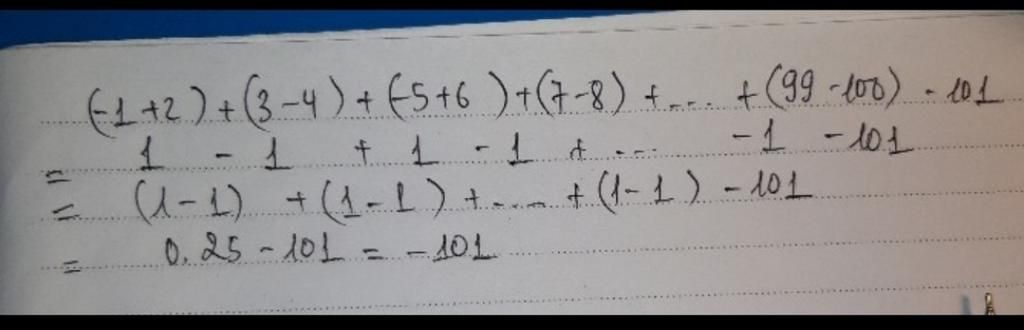 (-1+2)+(3-4)+(-5+6)+(7-8)+....+(99-100)-101
= 1 - 1 + 1 - 1 + ... -1 -101
= (1-1) +(1-1)+....+(1-1)-101
= 0.25-101=-101